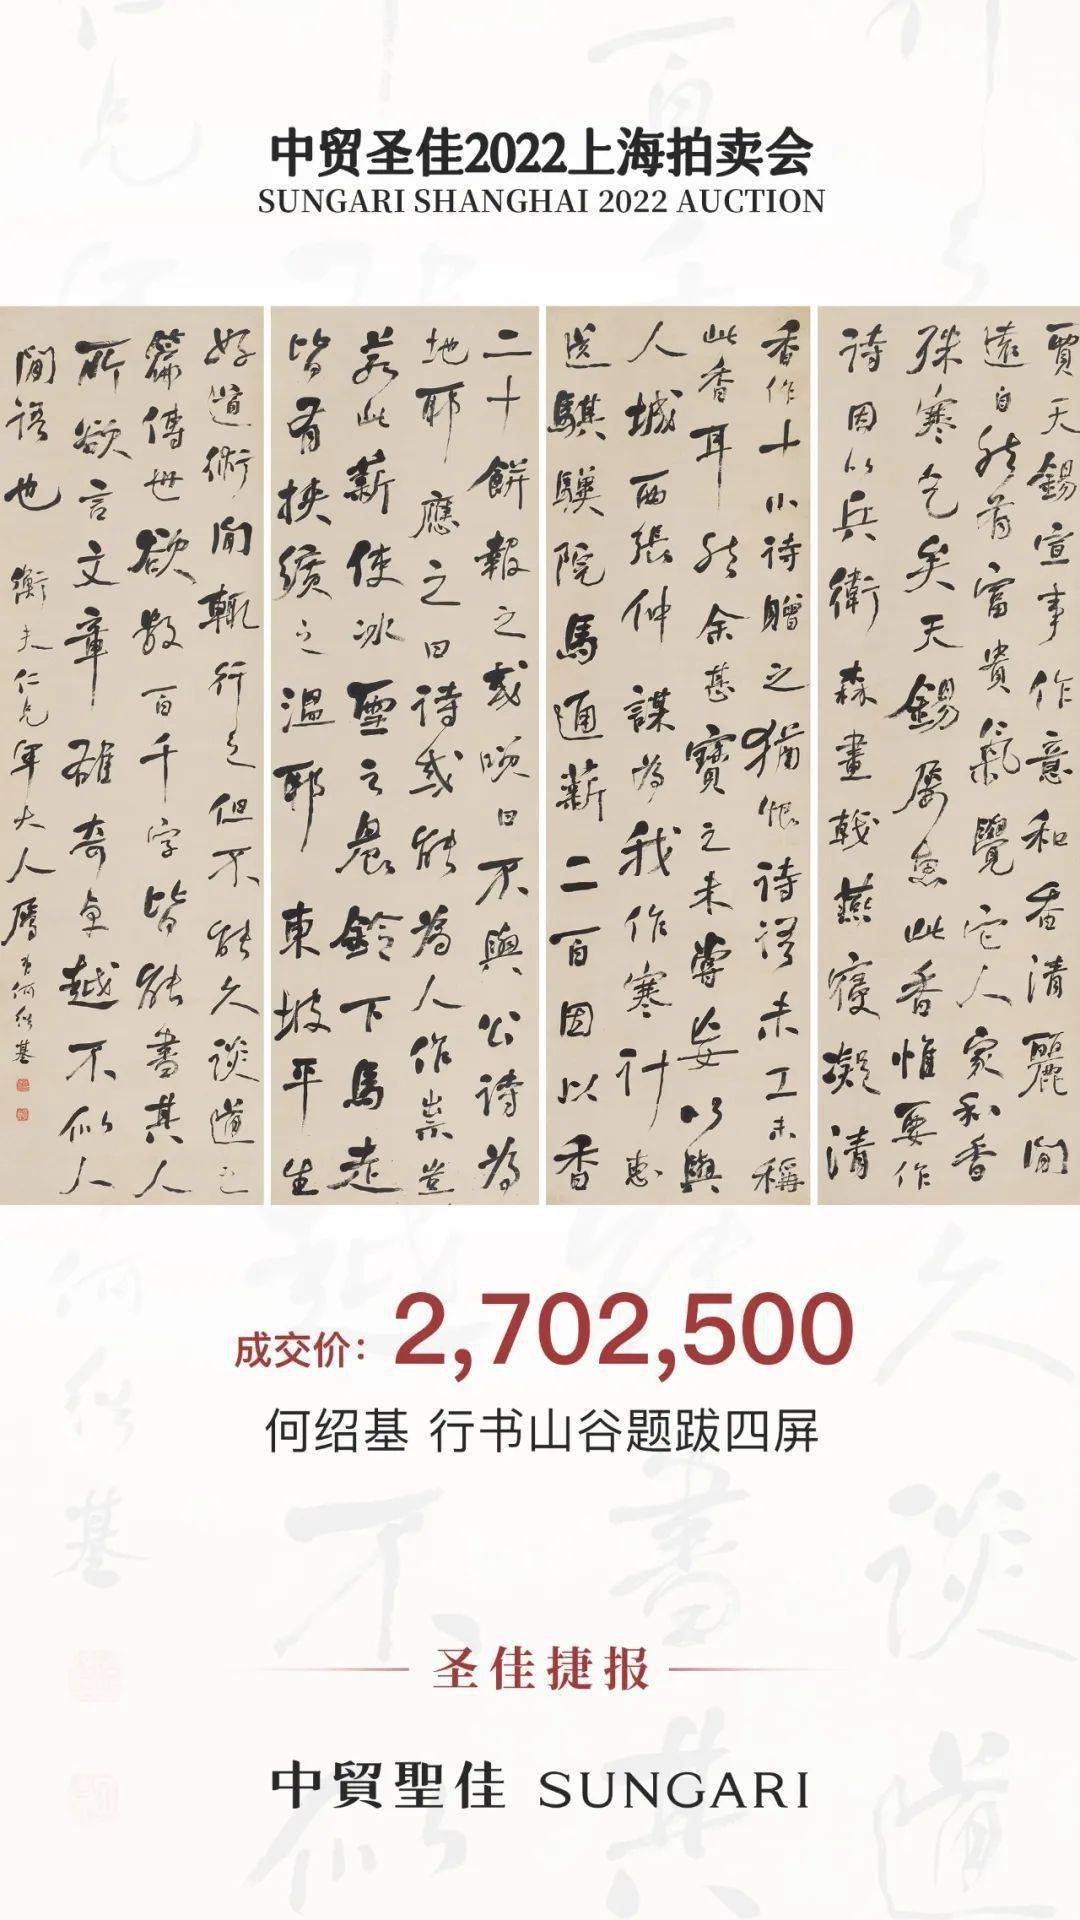 中贸圣佳2022上海拍卖会
SUNGARI SHANGHAI 2022 AUCTION
賈天錫宣事作意和香清麗閒
遠自然有富貴氣覺它人家和香
殊寒乞矣天錫屢惠此香惟要作
詩因以兵衛森畫戟燕寢凝清
香作十小詩贈之猶恨詩語未工未稱
此香耳然余甚寶之未嘗妄以與
人城西張仲謀為我作寒計惠
送騏驥院馬通薪二百因以香
二十餅報之或咲曰不與公詩為
地耶應之曰詩或能為人作祟豈
若此薪使冰雪之晨鈴下馬走
皆有挾纊之溫耶東坡平生
好道術聞輒行之但不能久談道之
篇傳世欲數百千字皆能書其人
所欲言文章雄奇卓越不似人
間語也 衡夫仁兄年大人屬 弟何紹基
成交价：2,702,500
何绍基 行书山谷题跋四屏
圣佳捷报
中貿聖佳 SUNGARI